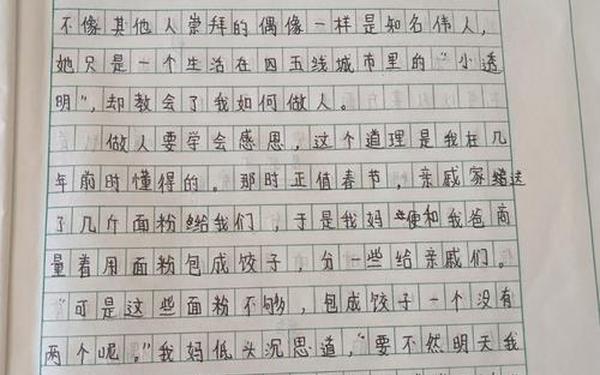 不像其他人崇拜的偶像一样是知名伟人，
她只是一个生活在四五线城市里的“小透
明”，却教会了我如何做人。
做人要学会感恩，这个道理是我在几
年前时懂得的。那时正值春节，亲戚家送
了几斤面粉给我们，于是我妈便和我爸商
量着用面粉包成饺子，分一些给亲戚们。
“可是这些面粉不够，包成饺子一个没有
两个呢。”我妈低头沉思道，“要不然明天我